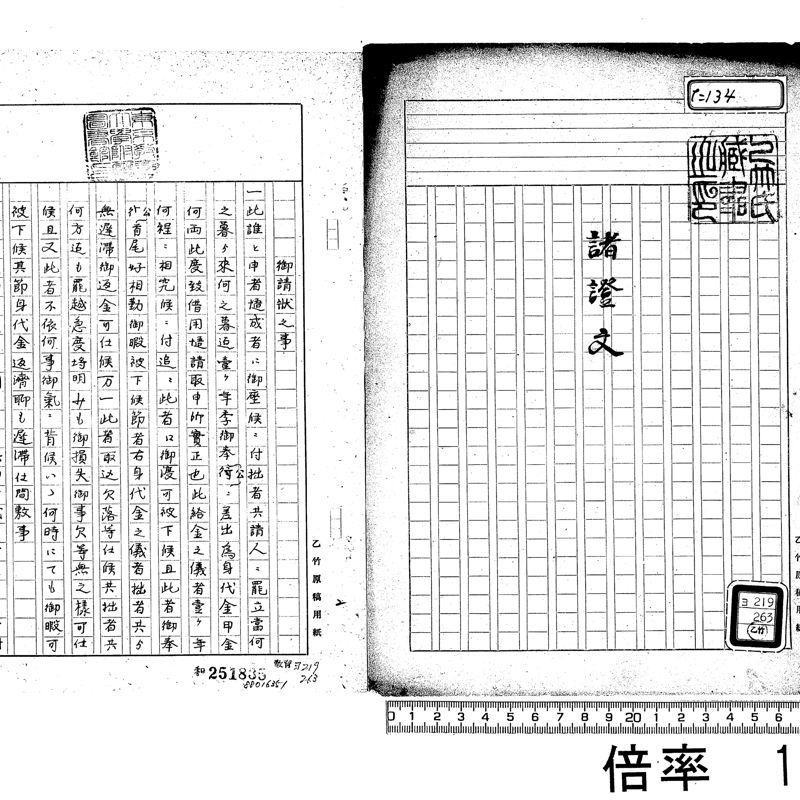 ｒ=134
乙竹氏
藏書
之印
諸證文
ヨ 219
263
乙竹
乙竹原稿用紙
御請状之事
一此誰と申者慥成者ニ御座候ニ付拙者共請人ニ罷立當何
之暮ゟ來何之暮迄壹ヶ年季御奉公ニ差出為身代金甲金
何両此度致借用慥請取申所實正也此給金之儀者壹ヶ年
何程ニ相究候ニ付追ニ此者ニ御渡可被下候且此者御奉
公首尾好相勤御暇被下候節者右身代金之儀者拙者共ゟ
無遅滞御返金可仕候万一此者取迯欠落等仕候共拙者共
何方迄も罷越急度埒明少も御損失御事欠等無之様可仕
候且又此者不依何事御氣ニ背候ハヽ何時にても御暇可
被下候其節身代金返濟聊も遅滞仕間敷事
乙竹原稿用紙
和 251835
88016351
教育ヨ219
263
0 1 2 3 4 5 6 7 8 9 20 1 2 3 4 5 6
倍率 1